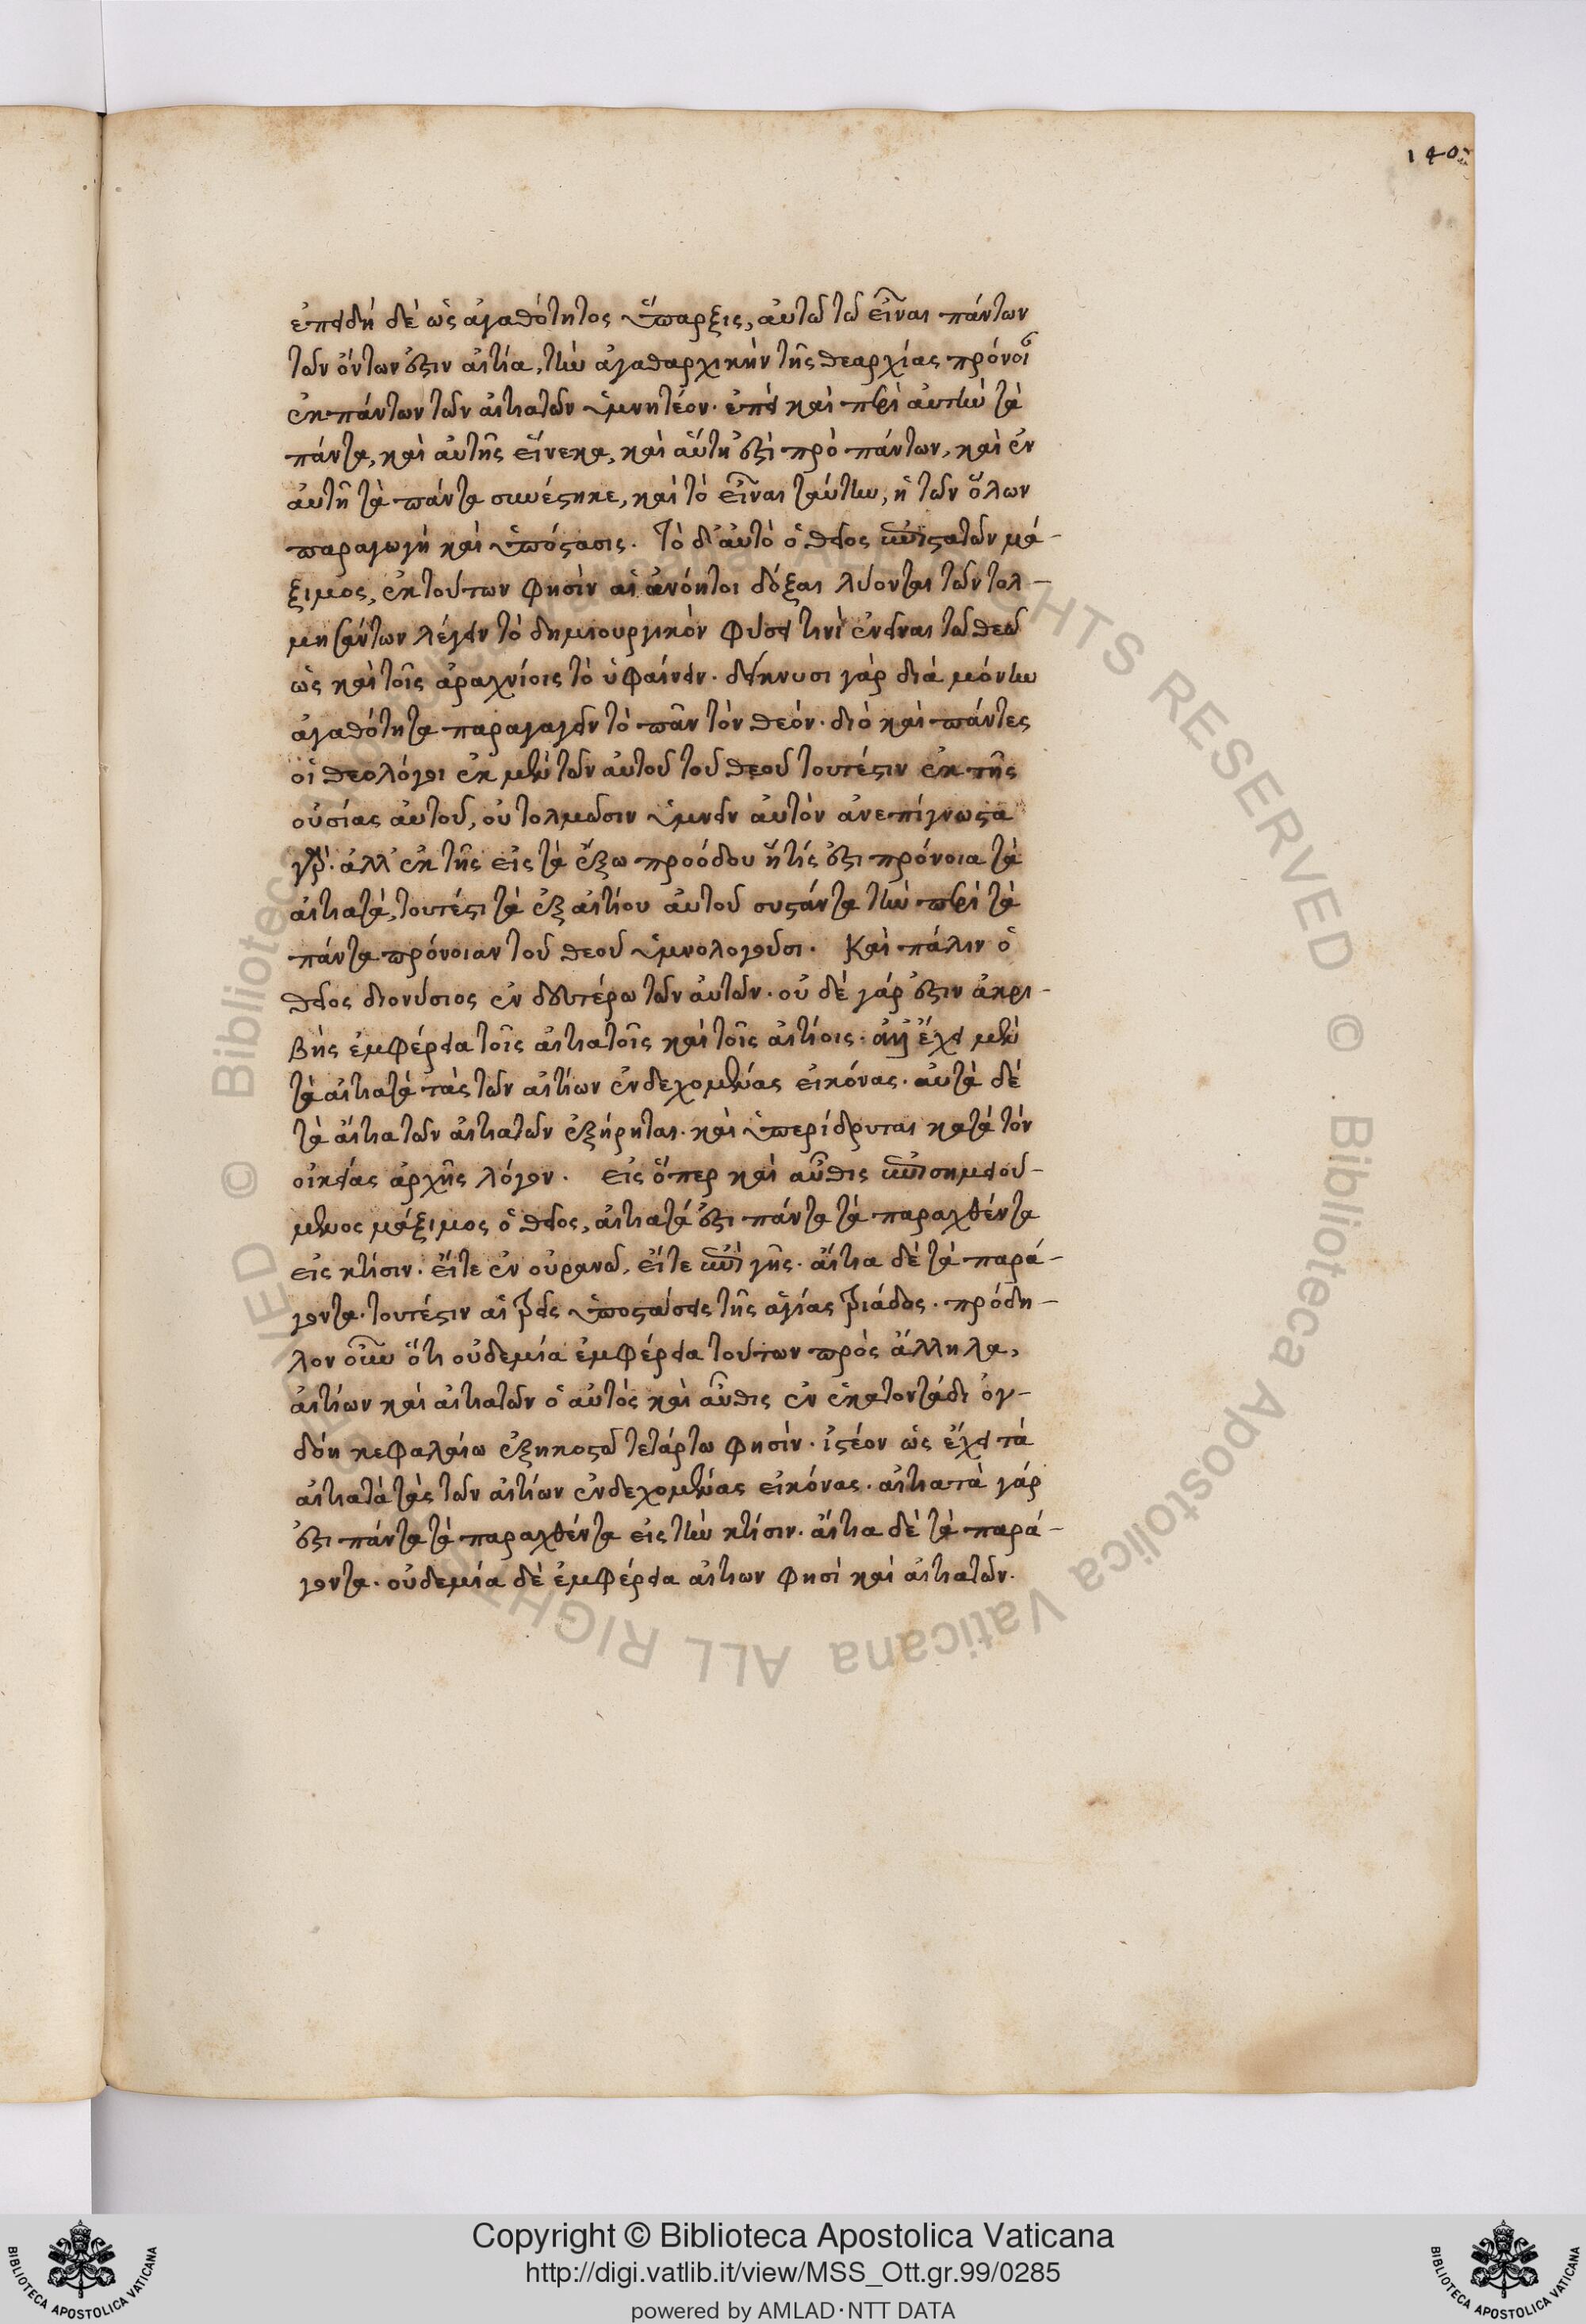 140
ἐπειδὴ δὲ ὡς ἀγαθότητος ὕπαρξις, αὐτῶ τῶ εἶναι πάντων
τῶν ὄντων ἐστιν αἰτία, τὴν ἀγαθαρχικὴν τῆς θεαρχίας πρόνοι
ἐκ πάντων τῶν αἰτιατῶν ὑμνητέον. ἐπεὶ καὶ περὶ αὐτὴν τὰ
πάντα, καὶ αὐτῆς εἵνεκα, καὶ αὕτη ἐστὶ πρὸ πάντων, καὶ ἐν
αὐτῆ τὰ πάντα συνέστηκε, καὶ τὸ εἶναι ταύτην, ἡ τῶν ὅλων
παραγωγὴ καὶ ὑπόστασις. τὸ δ' αὐτὸ ὁ θεῖος ἐπιστατῶν μά-
ξιμος, ἐκ τούτων φησὶν αἱ ἀνόητοι δόξαι λύονται τῶν τολ-
μησάντων λέγειν τὸ δημιουργικὸν φύσει τινὶ ἐνεῖναι τῶ θεῶ
ὡς καὶ τοῖς ἀραχνίοις τὸ ὑφαίνειν. δείκνυσι γὰρ διὰ μόνην
ἀγαθότητα παραγαγεῖν τὸ πᾶν τὸν θεόν. διὸ καὶ πάντες
οἱ θεολόγοι ἐκ μὲν τῶν αὐτοῦ τοῦ θεοῦ τουτέστιν ἐκ τῆς
οὐσίας αὐτοῦ, οὐ τολμῶσιν ὑμνεῖν αὐτὸν ἀνεπίγνωστα
γὰρ. ἀλλ' ἐκ τῆς εἰς τὰ ἔξω προόδου ἥτίς ἐστι πρόνοια τὰ
αἰτιατὰ, τουτέστι τὰ ἐξ αἰτίου αὐτοῦ συστάντα τὴν περὶ τὰ
πάντα πρόνοιαν τοῦ θεοῦ ὑμνολογοῦσι. Καὶ πάλιν ὁ
θεῖος διονύσιος ἐν δευτέρω τῶν αὐτῶν. οὐ δὲ γάρ ἐστιν ἀκρι-
βὴς ἐμφέρεια τοῖς αἰτιατοῖς καὶ τοῖς αἰτίοις. ἀλλ' ἔχει μὲν
τὰ αἰτιατὰ τὰς τῶν αἰτίων ἐνδεχομένας εἰκόνας. αὐτὰ δὲ
τὰ αἴτια τῶν αἰτιατῶν ἐξήρηται. καὶ ὑπερίδρυται κατὰ τὸν
οἰκείας ἀρχῆς λόγον. εἰς ὅπερ καὶ αὖθις ἐπισημειού-
μενος μάξιμος ὁ θεῖος, αἰτιατά ἐστι πάντα τὰ παραχθέντα
εἰς κτίσιν. εἴτε ἐν οὐρανῶ, εἴτε ἐπὶ γῆς. αἴτια δὲ τὰ παρά-
γοντα. τουτέστιν αἱ τρεῖς ὑποστάσεις τῆς ἁγίας τριάδος. πρόδη-
λον οὖν ὅτι οὐδεμία ἐμφέρεια τούτων πρὸς ἄλληλα,
αἰτίων καὶ αἰτιατῶν ὁ αὐτὸς καὶ αὖθις ἐν ἑκατοντάδι ὀγ-
δόη κεφαλαίω ἑξηκοστῶ τετάρτω φησὶν. ἰστέον ὡς ἔχει τὰ
αἰτιατὰ τὰς τῶν αἰτίων ἐνδεχομένας εἰκόνας. αἰτιατὰ γάρ
ἐστι πάντα τὰ παραχθέντα εἰς τὴν κτίσιν. αἴτια δὲ τὰ παρά-
γοντα. οὐδεμία δὲ ἐμφέρεια αἰτιων φησὶ καὶ αἰτιατῶν.
© Biblioteca Apostolica Vaticana ALL RIGHTS RESERVED © . Biblioteca Apostolica Vaticana ALL RIGHTS RESERVED
Copyright © Biblioteca Apostolica Vaticana
http://digi.vatlib.it/view/MSS_Ott.gr.99/0285
powered by AMLAD·NTT DATA
BIBLIOTECA APOSTOLICA VATICANA
BIBLIOTECA APOSTOLICA VATICANA